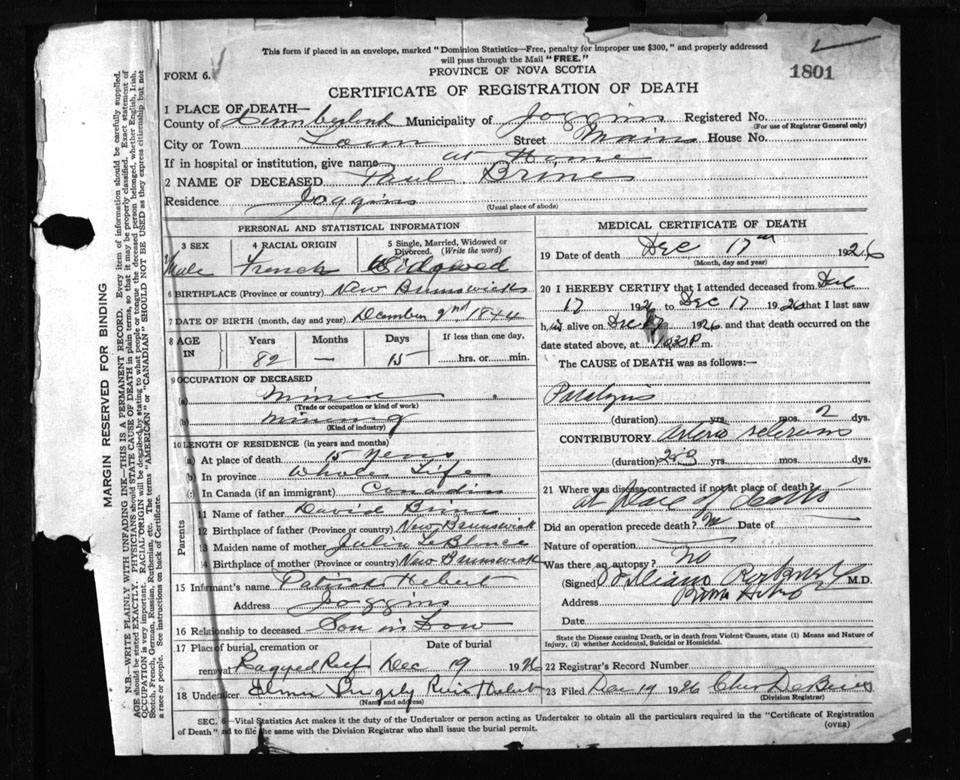 This form if placed in an envelope, marked "Dominion Statistics—Free, penalty for improper use $300," and properly addressed
will pass through the Mail "FREE."
FORM 6.
PROVINCE OF NOVA SCOTIA
1801
CERTIFICATE OF REGISTRATION OF DEATH
1 PLACE OF DEATH—
County of Cumberland Municipality of Joggins Registered No.
(For use of Registrar General only)
City or Town Town Street Main House No.
If in hospital or institution, give name at Home
2 NAME OF DECEASED Paul Brines
Residence Joggins
(Usual place of abode)
MARGIN RESERVED FOR BINDING
N.B.—WRITE PLAINLY WITH UNFADING INK—THIS IS A PERMANENT RECORD. Every item of information should be carefully supplied.
AGE should be stated EXACTLY. PHYSICIANS should STATE CAUSE OF DEATH in plain terms, so that it may be properly classified. Exact statement of
OCCUPATION is very important. RACIAL ORIGIN will be described by stating to what people or tongue the deceased person belonged, whether English, Irish,
Scotch, French, German, Russian, Ruthenian, etc. The terms "AMERICAN" or "CANADIAN" SHOULD NOT BE USED as they express citizenship but not
a race or people. See instructions on back of Certificate.
PERSONAL AND STATISTICAL INFORMATION
3 SEX
Male
4 RACIAL ORIGIN
French
5 Single, Married, Widowed or
Divorced. (Write the word)
Widowed
6 BIRTHPLACE (Province or country) New Brunswick
7 DATE OF BIRTH (month, day and year) December 2nd 1844
8 AGE IN
Years Months Days If less than one day,
82 — 15 hrs. or min.
9 OCCUPATION OF DECEASED
(a) Miner
(Trade or occupation or kind of work)
(b) mining
(Kind of industry)
10 LENGTH OF RESIDENCE (in years and months)
(a) At place of death 15 years
(b) In province Whole Life
(c) In Canada (if an immigrant) Canadian
Parents
11 Name of father David Brine
12 Birthplace of father (Province or country) New Brunswick
13 Maiden name of mother Julia LeBlanc
14 Birthplace of mother (Province or country) New Brunswick
15 Informant's name Patrick Hebert
Address Joggins
16 Relationship to deceased Son in Law
17 Place of burial, cremation or removal Date of burial
Ragged Reef Dec 19 1926
18 Undertaker Elmer River Hebert
(Name and address)
MEDICAL CERTIFICATE OF DEATH
19 Date of death Dec 17th 1926
(Month, day and year)
20 I HEREBY CERTIFY that I attended deceased from Dec
17 1926 to Dec 17 1926 that I last saw
him alive on Dec 17 1926 and that death occurred on the
date stated above, at m.
The CAUSE OF DEATH was as follows:—
Paralysis
(duration) yrs. mos. 2 dys.
CONTRIBUTORY Arterio sclerosis
(duration) 2 or 3 yrs. mos. dys.
21 Where was disease contracted if not at place of death?
at place of death
Did an operation precede death? No Date of
Nature of operation
Was there an autopsy? no
(Signed) M.D.
Address River Hebert
Date
State the Disease causing Death, or in death from Violent Causes, state (1) Means and Nature of
Injury, (2) whether Accidental, Suicidal or Homicidal.
22 Registrar's Record Number
23 Filed Dec 19 1926
(Division Registrar)
SEC. 6—Vital Statistics Act makes it the duty of the Undertaker or person acting as Undertaker to obtain all the particulars required in the "Certificate of Registration
of Death" and to file the same with the Division Registrar who shall issue the burial permit.
(OVER)